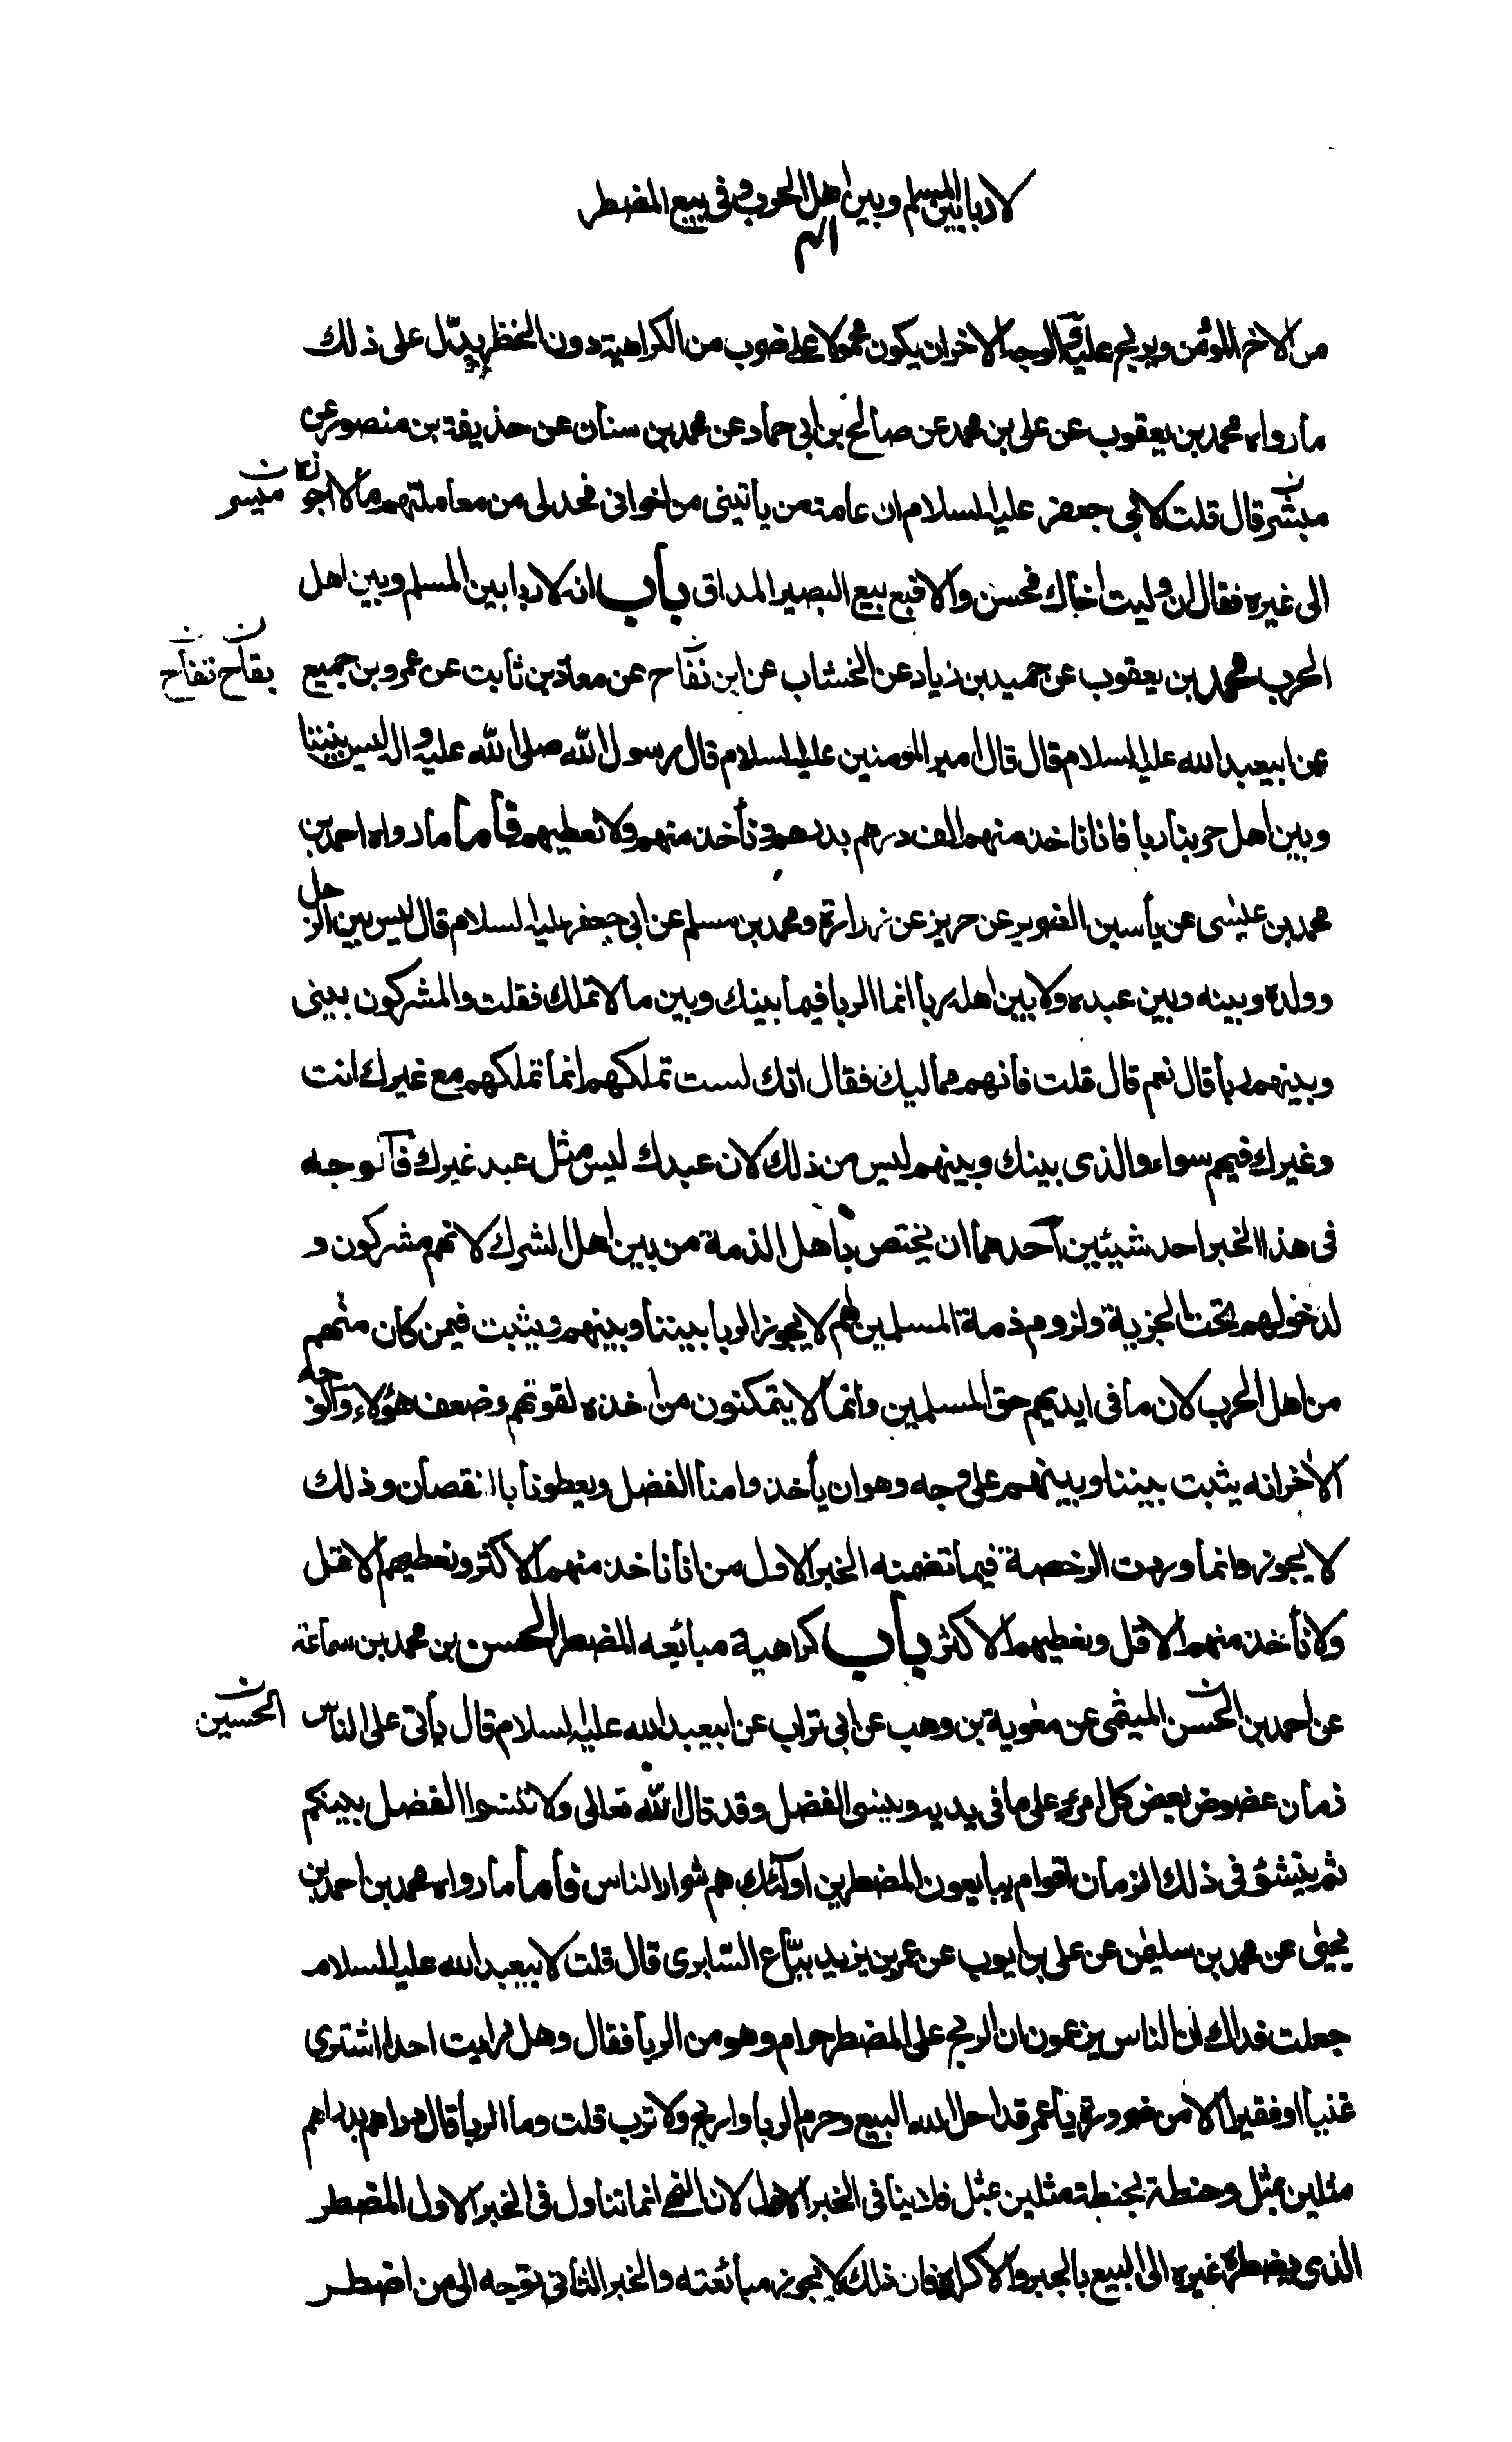 لا ربا بين المسلم وبين اهل الحرب وفى بيع المضطر
من الاخ المؤمن ويربح عليه والوجه الاخر ان يكون محمولا على ضرب من الكراهية دون الحظر يدّل على ذلك
ما رواه محمد بن يعقوب عن على بن محمد عن صالح بن ابى حماد عن محمد بن سنان عن حذيفة بن منصور عن
مبشر قال قلت لابى جعفر عليه السلام ان عامة من يأتينى من اخوانى فحد لى من معاملتهم ما لا اجوزه
ن ميسر
الى غيره فقال ان وليت اخاك فحسن والا فبع بيع البصير المداق باب انه لا ربا بين المسلم وبين اهل
الحرب محمد بن يعقوب عن حميد بن زياد عن الخشاب عن ابن نفاح عن معاذ بن ثابت عن عمرو بن جميع
بقاح تفاح
عن ابيعبد الله عليه السلام قال قال امير المؤمنين عليه السلام قال رسول الله صلى الله عليه واله ليس بيننا
وبين اهل حربنا ربا فانا ناخذ منهم الف درهم بدرهم ونأخذ منهم ولا نعطيهم فأما ما رواه احمد بن
محمد بن عيسى عن يأسين الضرير عن حريز عن زرارة ومحمد بن مسلم عن ابى جعفر عليه السلام قال ليس بين الرجل
وولده وبينه وبين عبده ولا بين اهله ربا انما الربا فيما بينك وبين ما لا تملك فقلت والمشركون بينى
وبينهم ربا قال نعم قال قلت فانهم مماليك فقال انك لست تملكهم انما تملكهم مع غيرك انت
وغيرك فيهم سواء والذى بينك وبينهم ليس من ذلك لان عبدك ليس مثل عبد غيرك فالوجه
فى هذا الخبر احد شيئين احدهما ان يختص بأهل الذمة من بين اهل الشرك لانهم مشركون و
لدخولهم تحت الجزية ولزوم ذمة المسلمين لهم لا يجوز الربا بيننا وبينهم ويثبت فيمن كان منهم
من اهل الحرب لان ما فى ايديهم حق المسلمين وانما لا يتمكنون من اخذه لقوتهم وضعف هؤلاء والوجه
الاخر انه يثبت بيننا وبينهم على وجه وهو ان يأخذوا منا الفضل ويعطونا بالنقصان وذلك
لا يجوز وانما وردت الرخصة فيما تضمنه الخبر الاول من انا ناخذ منهم الاكثر ونعطيهم الاقل
ولا نأخذ منهم الاقل ونعطيهم الاكثر باب كراهية مبائعه المضطر الحسن بن محمد بن سماعة
عن احمد بن الحسن الميثمى عن معوية بن وهب عن ابى تراب عن ابيعبد الله عليه السلام قال يأتى على الناس
ن الحسين
زمان عضوض يعض كل امرئ على ما فى يديه وينسى الفضل وقد قال الله تعالى ولا تنسوا الفضل بينكم
ثم ينشؤ فى ذلك الزمان اقوام يبايعون المضطرين اولئك هم شرار الناس فأما ما رواه محمد بن احمد بن
يحيى عن محمد بن سليمن عن على بن ايوب عن عمر بن يزيد بيّاع السابرى قال قلت لابيعبد الله عليه السلام
جعلت فداك ان الناس يزعمون ان الربح على المضطر حرام وهو من الربا فقال وهل رايت احدا اشترى
غنيا او فقيرا الا من ضرورة يأعمر قد احل الله البيع وحرم الربا واربح ولا ترب قلت وما الربا قال دراهم بدراهم
مثلين بمثل وحنطة بحنطة مثلين بمثل فلا ينافى الخبر الاول لان النهى انما تناول فى الخبر الاول المضطر
الذى يضطره غيره الى البيع بالجبر والاكراه فان ذلك لا يجوز مبائعته والخبر الثانى توجه الى من اضطر